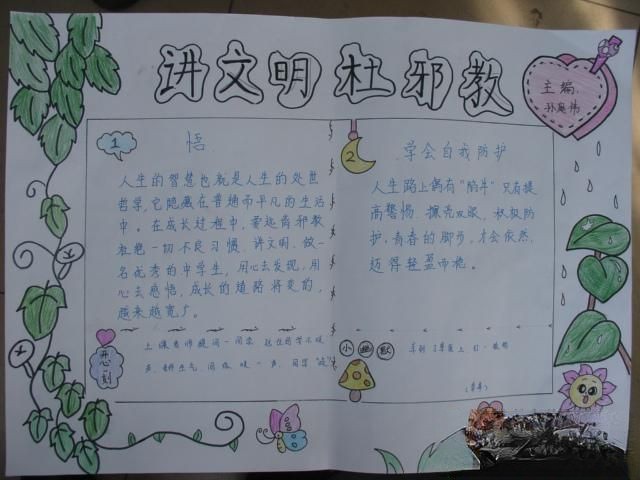 讲文明杜邪教
主编
孙
1
悟
人生的智慧也就是人生的处世
哲学,它隐藏在普通而平凡的生活
中。在成长过程中,要远离邪教
杜绝一切不良习惯,讲文明,做一
名优秀的中学生,用心去发现,用
心去感悟,成长的道路将变的,
越来越宽广。
2
学会自我防护
人生路上偶有"陷井"只有提
高警惕 擦亮双眼,积极防
护,青春的脚步,才会依然,
迈得轻盈而
恶刻
上课老师提问一同学
声,老师生气
小幽默